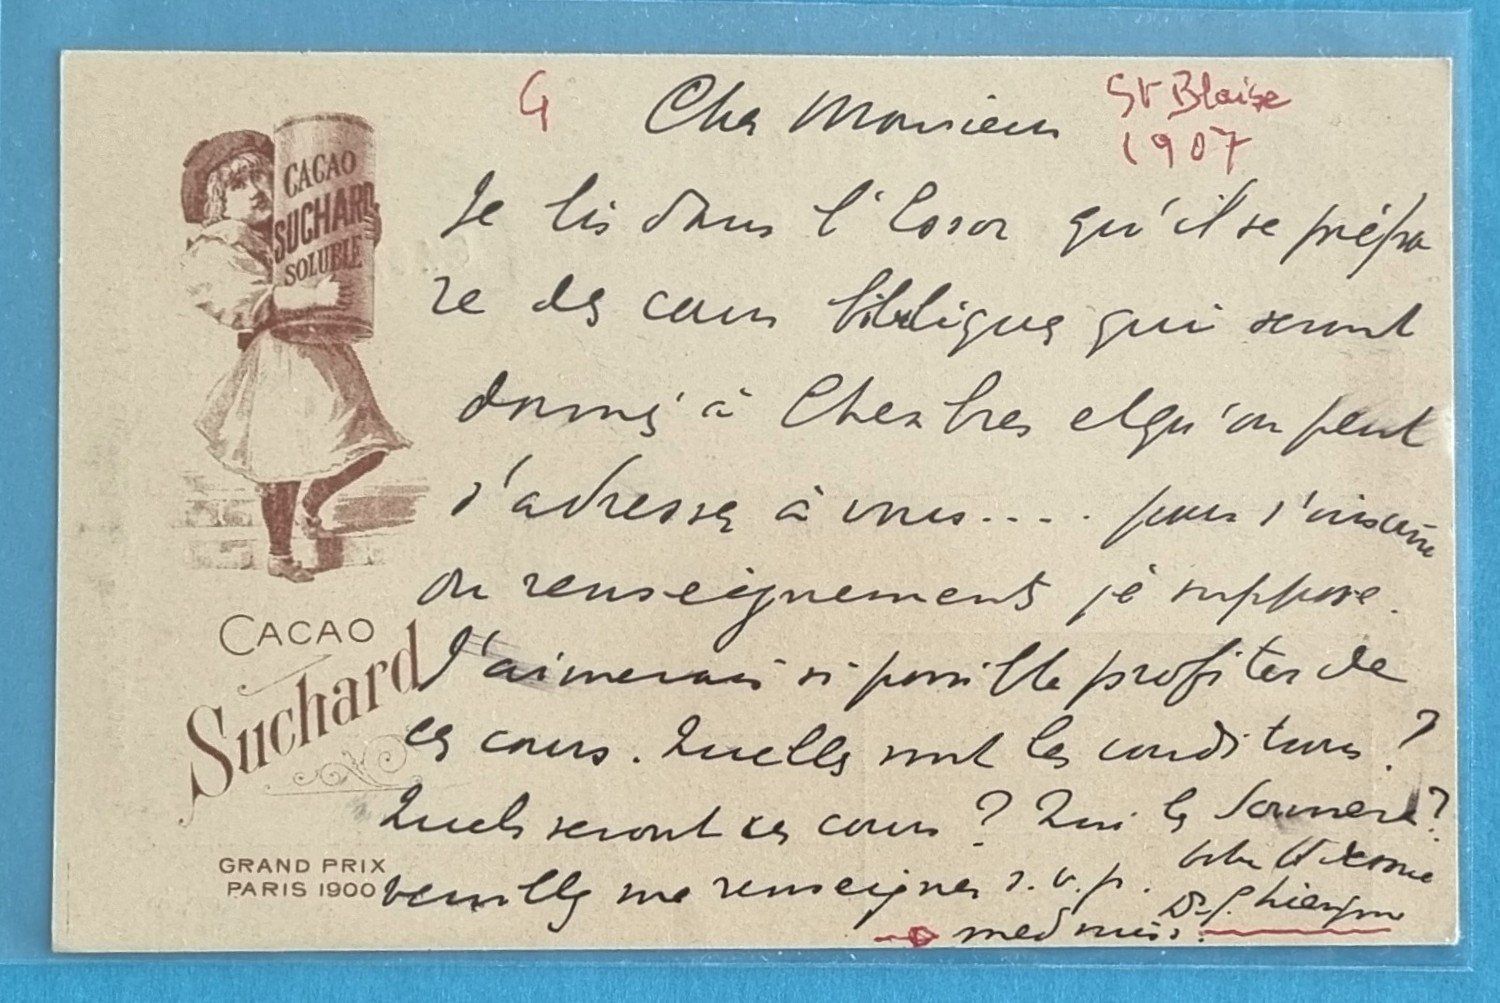 G
St Blaise
1907
Cher Monsieur
Je lis dans l'Essor qu'il se prépa
re des cours bibliques qui seront
donnés à Chexbres et qu'on peut
s'adresser à vous.... pour s'inscrire
ou renseignements je suppose.
J'aimerais si possible profiter de
ces cours. Quelles sont les conditions?
Quels seront ces cours? Qui les donnera?
veuillez me renseigner s.v.p.
Dr
med miss.
CACAO
SUCHARD
SOLUBLE
CACAO
Suchard
GRAND PRIX
PARIS 1900